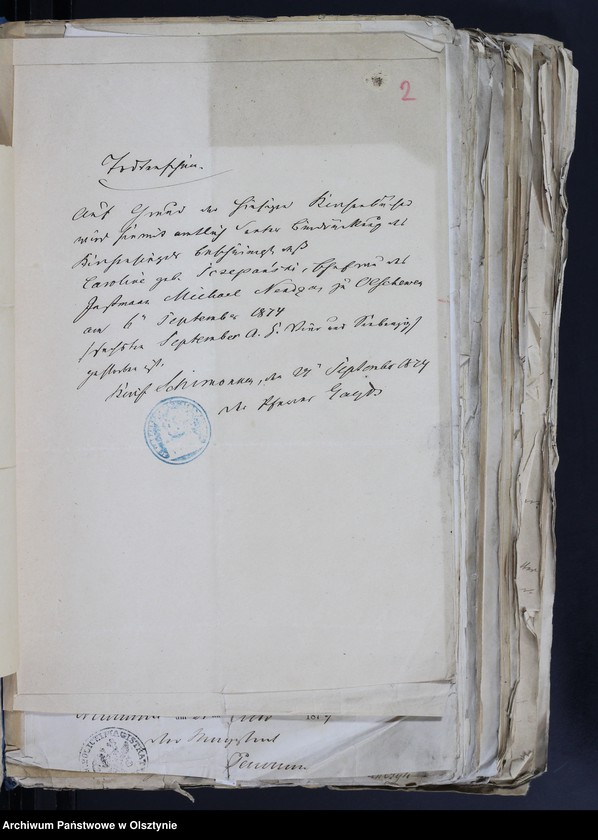 2
Todtenschein.
Auf Grund der hiesigen Kirchenbücher
wird hiermit amtlich unter Beidrückung des
Kirchensiegels bescheinigt daß
Caroline geb. Sczepanski, Ehefrau des
Michael Nendza, zu Olschewen
am 6t September 1874
/ Sechsten September a. h. Vier und Siebenzig /
gestorben ist.
Schimonken, den 24t September 1874
der Pfarrer
der Magistrat
Archiwum Państwowe w Olsztynie